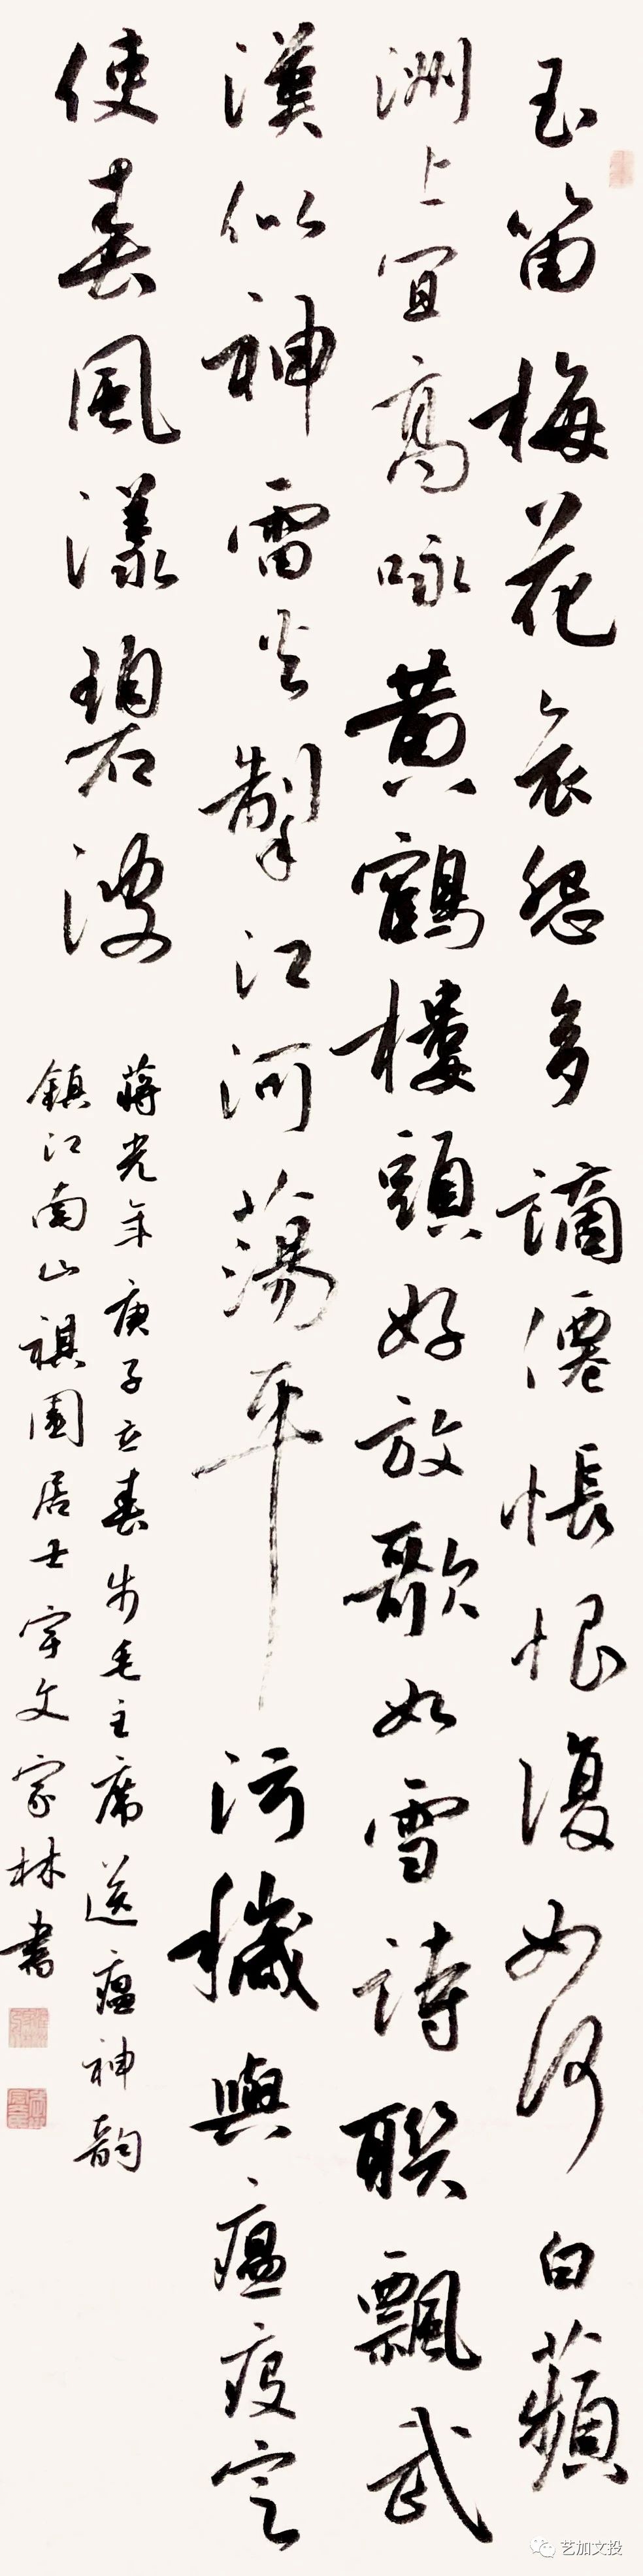 玉笛梅花哀怨多謫僊悵恨復如何白蘋
洲上宜高咏黄鶴樓頭好放歌如雪詩聯飄武
漢似神雷火掣江河蕩平污穢與瘟疫定
使春風漾碧波
蔣光年庚子立春步毛主席送瘟神韵
鎮江南山祺園居士宇文家林書
艺加文投